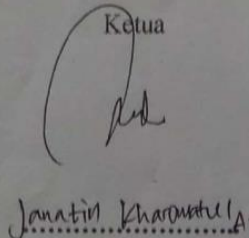 Ketua
Janatin Kharowatul A